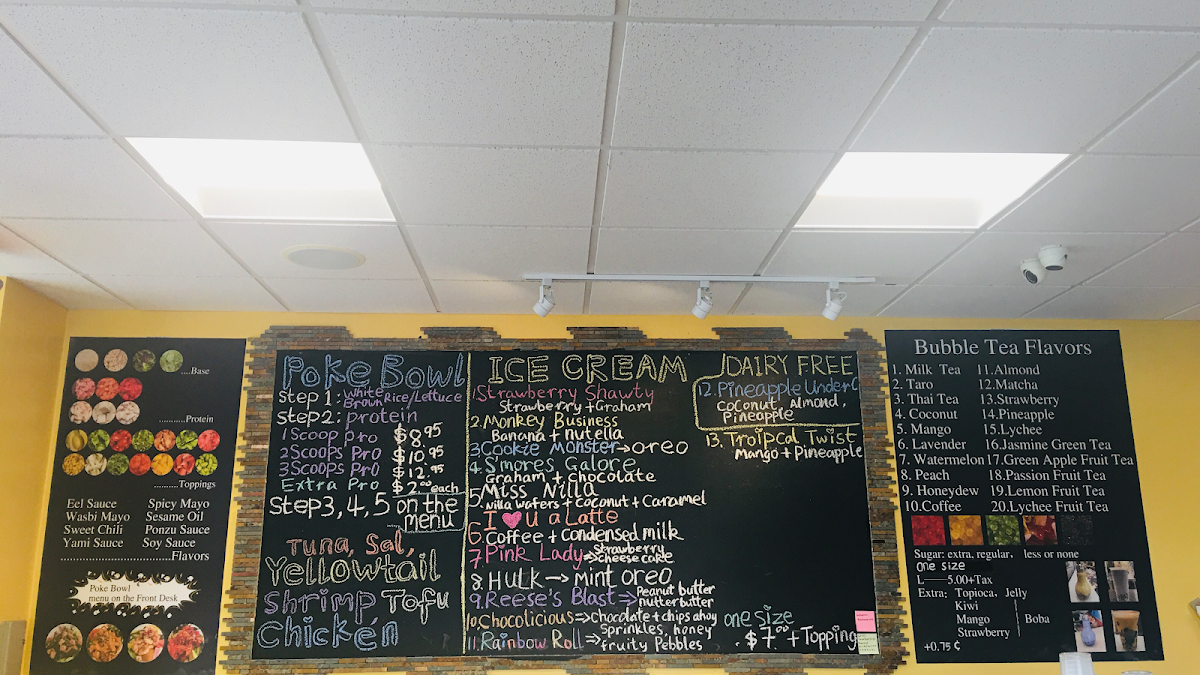 ....Base
..........Protein
..........Toppings
Eel Sauce Spicy Mayo
Wasbi Mayo Sesame Oil
Sweet Chili Ponzu Sauce
Yami Sauce Soy Sauce
..............................Flavors
Poke Bowl
menu on the Front Desk
Poke Bowl
Step 1: White Brown Rice/Lettuce
Step2: protein
1 Scoop Pro $8.95
2 Scoops Pro $10.95
3 Scoops Pro $12.95
Extra Pro $2.00 each
Step3, 4, 5 on the
menu
Tuna, Sal,
Yellowtail
Shrimp Tofu
Chicken
ICE CREAM
1. Strawberry Shawty
Strawberry + Graham
2. Monkey Business
Banana + nutella
3. Cookie Monster → oreo
4. S'mores Galore
Graham + Chocolate
5. Miss Nilla
Nilla wafers + Coconut + Caramel
6. I ❤ u a Latte
Coffee + Condensed milk
7. Pink Lady → Strawberry
cheesecake
8. Hulk → Mint oreo
9. Reese's Blast → Peanut butter
nutterbutter
10. Chocolicious → chocolate + chips ahoy
11. Rainbow Roll → Sprinkles, honey
fruity Pebbles
DAIRY FREE
12. Pineapple Under C
Coconut, Almond,
Pineapple
13. Troipcal Twist
Mango + Pineapple
one size
$7.00 + Topping
Bubble Tea Flavors
1. Milk Tea 11.Almond
2. Taro 12.Matcha
3. Thai Tea 13.Strawberry
4. Coconut 14.Pineapple
5. Mango 15.Lychee
6. Lavender 16.Jasmine Green Tea
7. Watermelon 17.Green Apple Fruit Tea
8. Peach 18.Passion Fruit Tea
9. Honeydew 19.Lemon Fruit Tea
10.Coffee 20.Lychee Fruit Tea
Sugar: extra, regular, less or none
one size
L——5.00+Tax
Extra: Topioca, Jelly
Kiwi
Mango Boba
Strawberry
+0.75 ¢